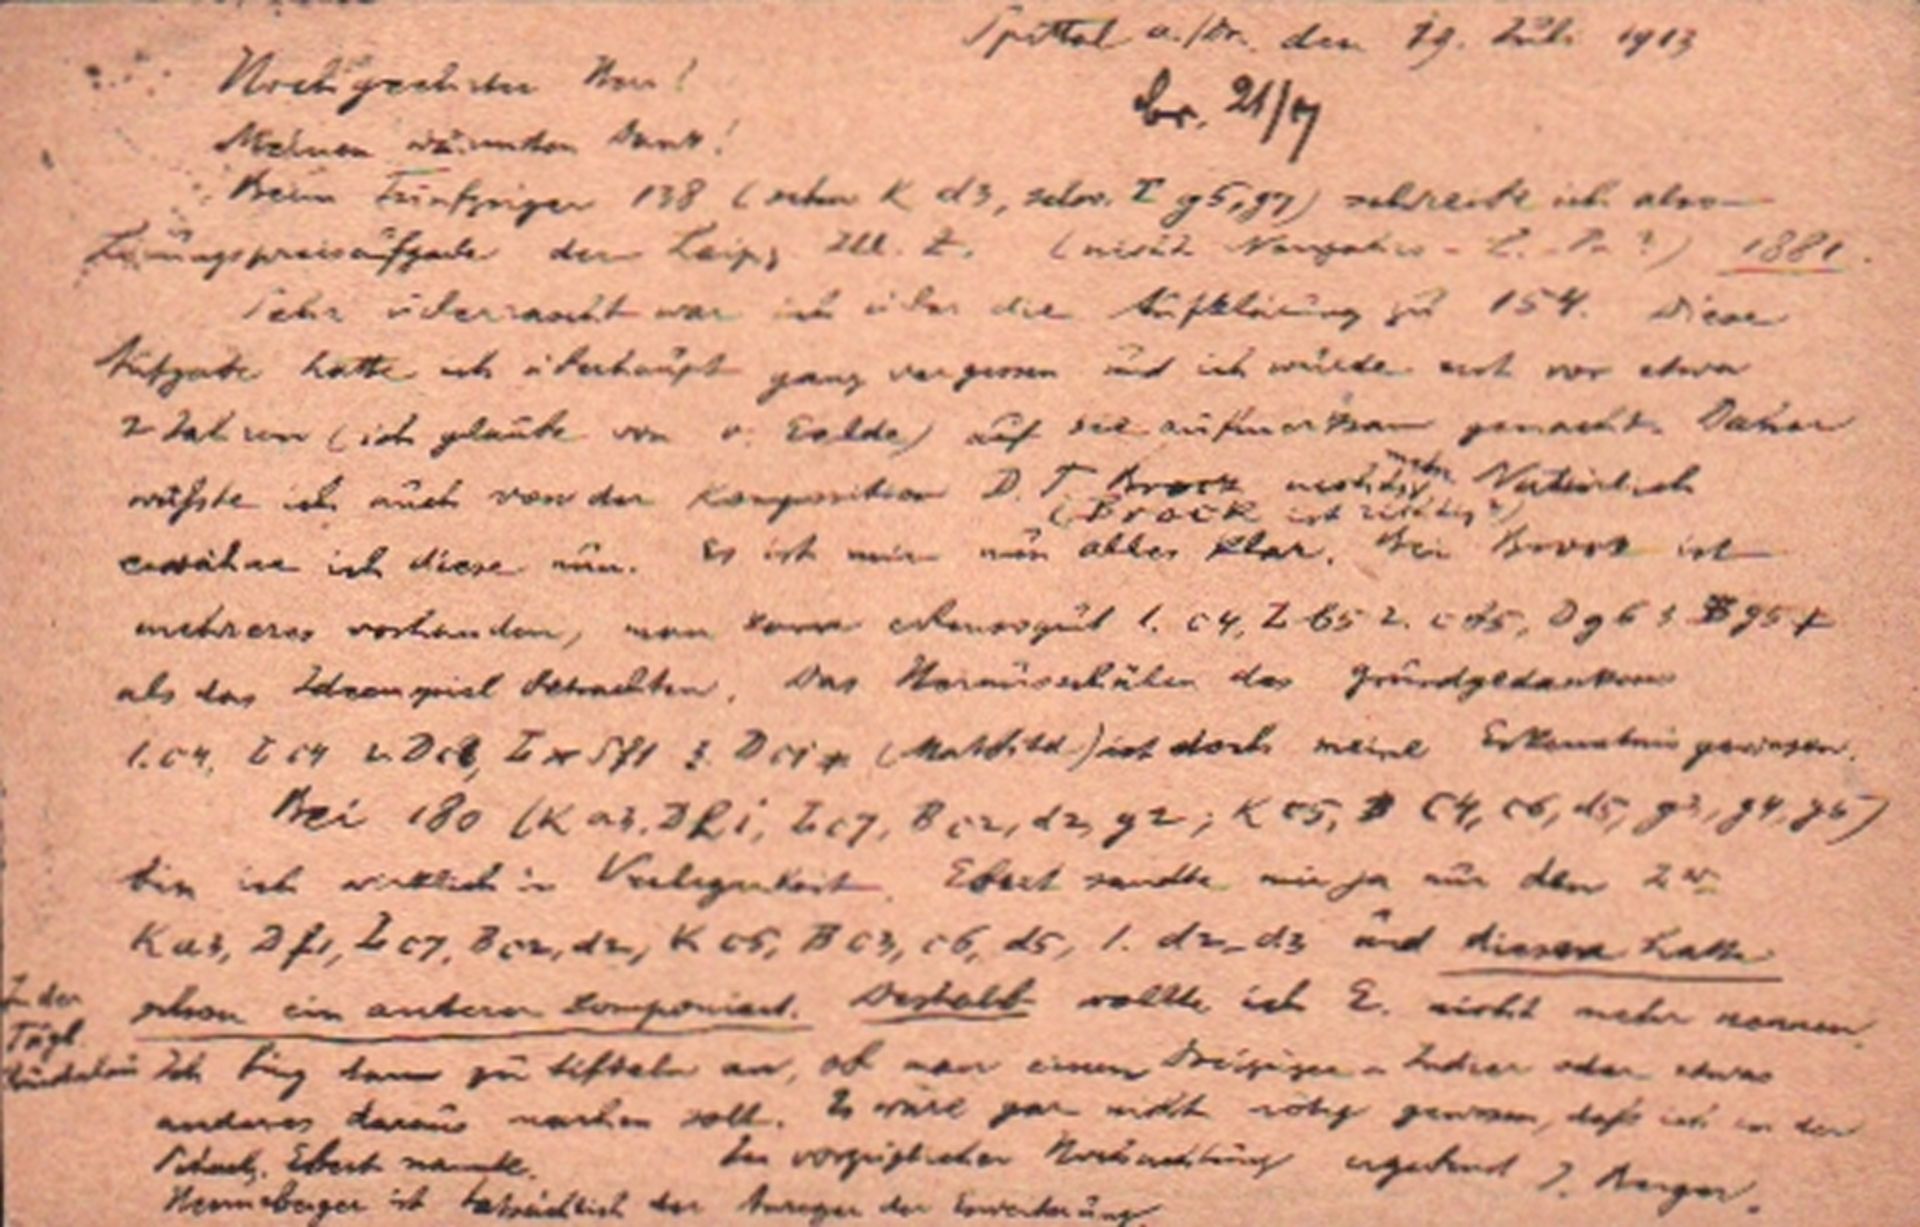 Spittal a./Dr. den 19. Juli 1913
Hochgeehrter Herr!
br. 21/7
Meinen wärmsten Dank!
Beim Fünfzüger 138 (schw. K d3, schw. L g5, g7) schreibe ich also
Lösungspreisaufgabe der Leipz. Ill. Z. (nicht) 1881.
Sehr überrascht war ich über die Aufklärung zu 154. Diese
Aufgabe hatte ich überhaupt ganz vergessen und ich wurde erst vor etwa
2 Jahren (ich glaube von v. Eelde) auf sie aufmerksam gemacht. Daher
wußte ich auch von der Komposition D. T. Brock nichts mehr. Natürlich
(Brock ist richtig?)
erwähne ich diese nun. Es ist mir nun alles klar. Bei Brock ist
mehreres vorhanden, man kann ebensogut 1. c4, L b5 2. c d5, D g6 3. B g5 +
als das Ideenspiel betrachten. Das Herausschälen des Grundgedankens
1. c4, L c4 2. D c1, L x S f1 3. D c1 + (Mattbild) ist doch meine Erkenntnis gewesen.
Bei 180 (K a3, D f1, L c7, B c2, d2, g2; K c5, B c4, c6, d5, g3, g4, g5)
bin ich wirklich in Verlegenheit. Ebert sandte mir ja nur den 2 er
K a3, D f1, L c7, B c2, d2, K c5, B c3, c6, d5, 1. d2-d3 und diesen hatte
schon ein anderer komponiert. Deshalb wollte ich E. nicht mehr nennen.
In der
Tägl.
Rundschau
Ich fing dann zu tüfteln an, ob man einen Dreizüger-Inder oder etwas
anderes daraus machen soll. Es wäre gar nicht nötig gewesen, daß ich in der
Ebert nannte. In vorzüglicher Hochachtung ergebenst J. Berger.
Henneberger ist tatsächlich der Anreger der Erweiterung.